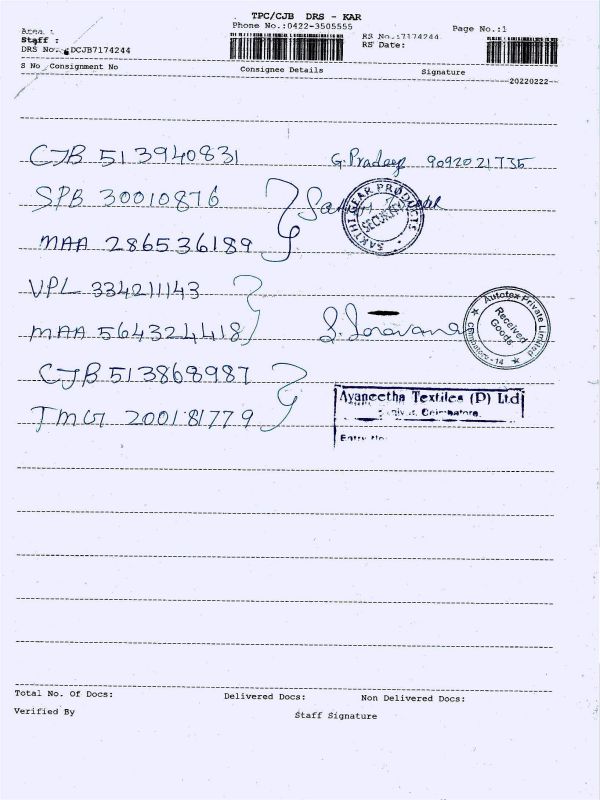 TPC/CJB DRS - KAR
Phone No.:0422-3505555
Page No.:1
Area :
Staff :
DRS No. DCJB7174244
RS No.:7174244
RS Date:
S No Consignment No Consignee Details Signature
20220222
CJB 513940831 G. Pradeep 9092021735
SPB 30010876
SAKTHI GEAR PRODUCTS
SECURITY
MAA 286536189
VPL 334211143
MAA 564324418 S. Saravana
Autotex Private Limited
Received Goods
Coimbatore - 14
CJB 513868987
Ayaneetha Textiles (P) Ltd
Coimbatore.
TMG 200181779
Entry No.
Total No. Of Docs: Delivered Docs: Non Delivered Docs:
Verified By Staff Signature